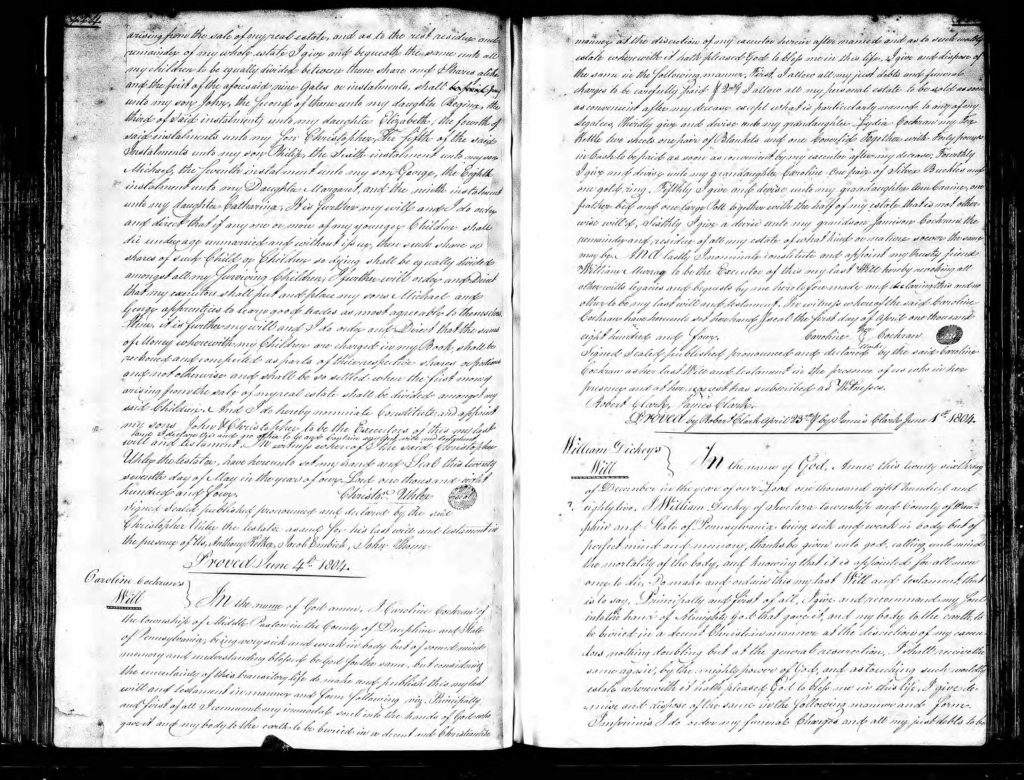 224
arising from the sale of my real estate, and as to the rest residue and
remainder of my whole estate I give and bequeath the same unto all
my children to be equally divided between them share and Shares alike
and the first of the aforesaid nine Gales or instalments, shall
unto my son John, the second of them unto my daughter Regina, the
third of said instalments unto my daughter Elizabeth, the fourth of
said instalments unto my Son Christopher, the fifth of the said
Instalments unto my son Philip, the Sixth instalment unto my son
Michael, the seventh instalment unto my son George, the Eighth
instalment unto my Daughter Margaret, and the ninth instalment
unto my daughter Catharina, It is further my will and I do order
and direct that if any one or more of my younger Children shall
die under age unmarried and without issue, then such share or
shares of such Child or Children so dying shall be equally divided
amongst all my surviving Children, I further will order and Direct
that my executors shall put and place my sons Michael and
George apprentices to learn good trades as most agreeable to themselves
Item, it is further my will and I do order and Direct that the sums
of Money wherewith my Children are charged in my Book, shall be
reckoned and computed as parts of their respective shares or portions
and not otherwise and shall be so settled when the first money
arising from the sale of my real estate shall be divided amongst my
said Children. And I do hereby nominate Constitute and appoint
my sons John & Christopher, to be the Executors of this my last
will and testament. In witness whereof I the said Christopher
Uhler the testator, have hereunto set my hand and Seal this twenty
seventh day of May in the year of our Lord one thousand eight
hundred and four. Christr. Uhler
Signed Sealed published pronounced and declared by the said
Christopher Uhler the testator as and for his last will and testament in
the presence of Us, Anthony Kelker, Jacob Embich, John Thome
Proved June 4th. 1804.
Caroline Cochran's
Will
In the name of God amen, I Caroline Cochran of
the township of Middle Paxton in the County of Dauphin and State
of Pennsylvania, being very sick and weak in body but of sound mind
memory and understanding blessed be God for the same, but considering
the uncertainty of this transitory life do make and publish this my last
will and testament in manner and form following, viz, Principally
and first of all I commit my immortal soul into the hands of God who
gave it and my body to the earth to be buried in a decent and Christianlike
manner at the discretion of my executor herein after named and as to such worldly
estate wherewith it hath pleased God to bless me in this life, I give and dispose of
the same in the following manner, First, I allow all my just debts and funeral
charges to be carefully paid I allow all my personal estate to be sold as soon
as convenient after my decease except what is particularly named to any of my
legatees, thirdly give and devise unto my grandaughter Lydia Cochran my
Kettle two sheets one pair of Blankets and one Coverlid together with forty pounds
in Cash to be paid as soon as convenient by my executor after my decease, Fourthly
I give and devise unto my grandaughter Caroline one pair of Silver Buckles and
one gold ring, Fifthly I give and devise unto my grandaughter Ann one
feather bed and one large together with the half of my estate that is not other-
wise will'd, Sixthly I give a devise unto my grandson Jamison Cochran the
remainder and residue of all my estate of what kind or nature soever the same
may be. And lastly I nominate constitute and appoint my trusty friend
William Murray to be the Executor of this my last Will hereby revoking all
other wills legacies and bequests by me heretofore made and declaring this and no
other to be my last will and testament. In witness whereof the said Caroline
Cochran have hereunto set her hand & seal the first day of April one thousand
eight hundred and four. Caroline her mark Cochran
Signed Sealed published pronounced and declared by the said Caroline
Cochran as her last Will and testament in the presence of us who in her
presence and at her request has subscribed as Witnesses.
Robert Clark, James Clark.
Proved by Robert Clark April 23rd & by James Clark June 1st. 1804.
William Dickey's
Will
In the name of God, Amen, this twenty sixth day
of December in the year of our Lord one thousand eight hundred and
eighty two, I William Dickey of township and County of Dau-
phin and State of Pennsylvania being sick and weak in body but of
perfect mind and memory, thanks be given unto god, calling unto mind
the mortality of the body, and knowing that it is appointed for all men
once to die, Do make and ordain this my last Will and testament that
is to say, Principally and first of all, I give and recommend my Soul
into the hands of Almighty God that gave it, and my body to the earth to
be buried in a decent Christian manner at the discretion of my execu-
tors nothing doubting but at the general resurrection, I shall receive the
same again, by the mighty power of God, and as touching such worldly
estate wherewith it hath pleased God to bless me in this life, I give de-
mise and dispose of the same in the following manner and form.
Imprimis I do order my funeral Charges and all my just debts to be